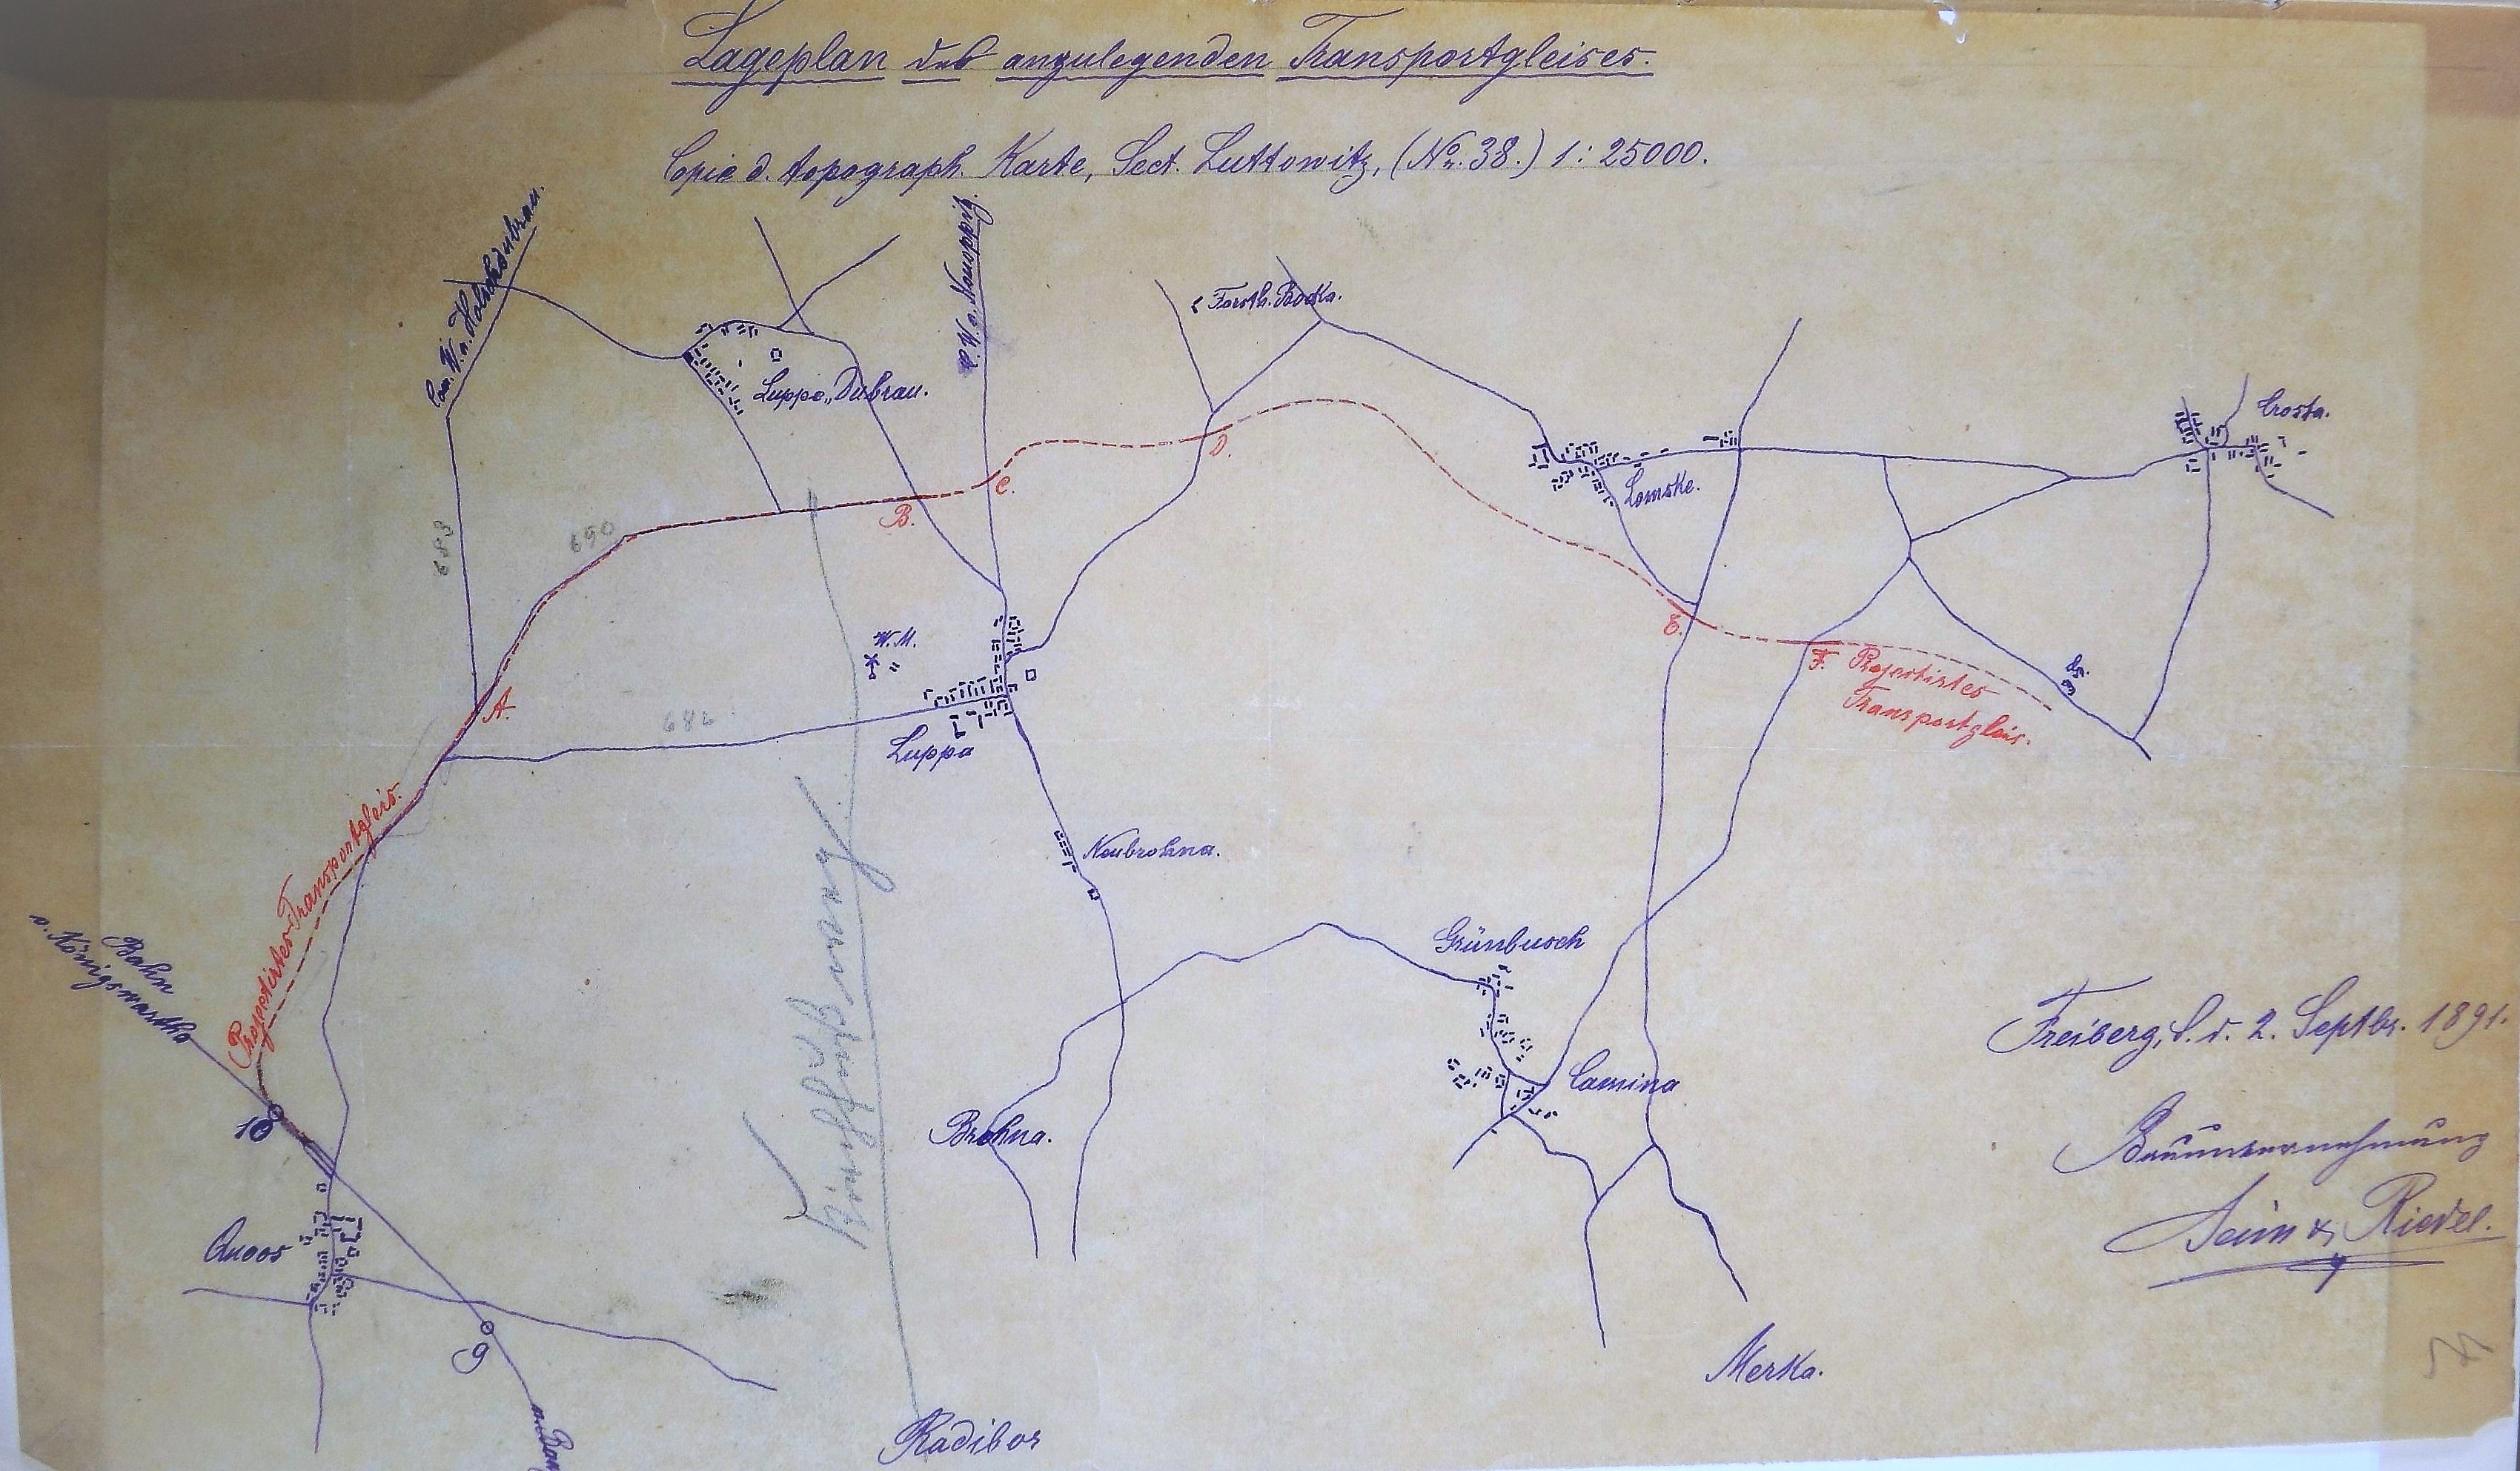 Lageplan des anzulegenden Transportgleises.
Copie d. topograph. Karte, Sect. Luttowitz, (No. 38.) 1:25000.
Com. W. n. Holschdubrau.
C. W. n.
Forsth.
Luppa, Dubrau.
Crosta.
Lomske.
D.
C.
B.
690
683
E.
W. M.
F. Projectirtes
Transportgleis.
A.
682
Luppa
Projectirtes Transportgleis.
Neubrohna.
Bahn
v. Königswartha
Grünbusch
Freiberg, d. 2. Septbr. 1891.
Camina
10
Brohna.
Bauunternehmung
& Riedel.
Quoos
9
Merka.
Radibor